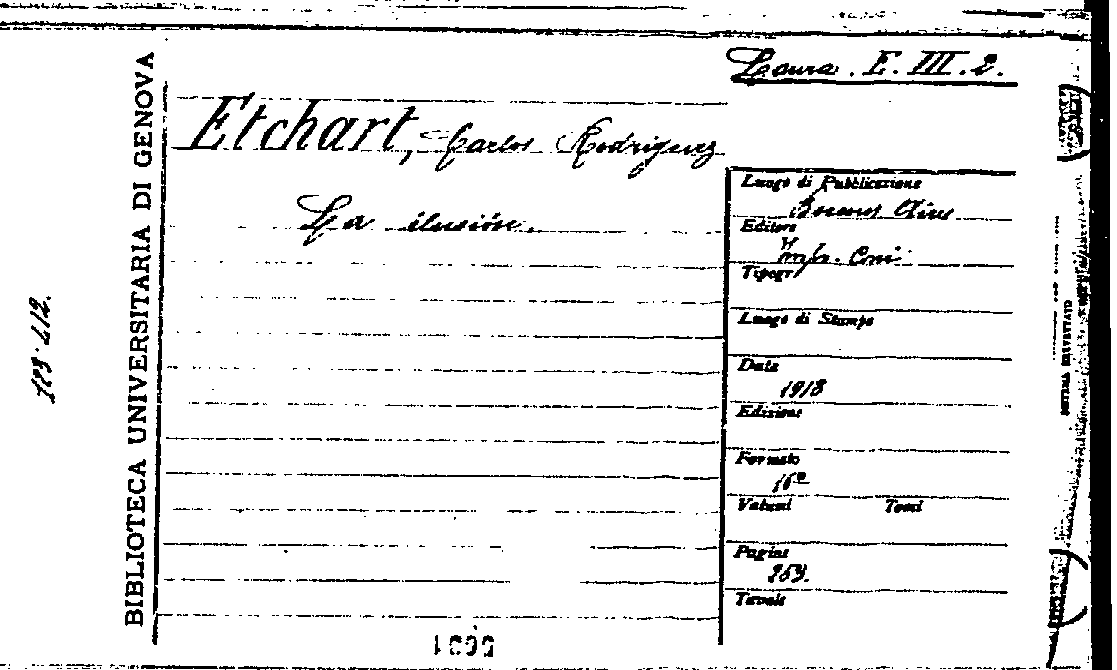 Laura. E. III. 2.
Etchart, Carlos Rodriguez
La ilusión.
BIBLIOTECA UNIVERSITARIA DI GENOVA
Luogo di Pubblicazione
Buenos Aires
Editore
Impr. Coni
Tipogr
Luogo di Stampa
Data
1918
Edizione
Formato
16º
Volumi Tomi
Pagine
263.
Tavole